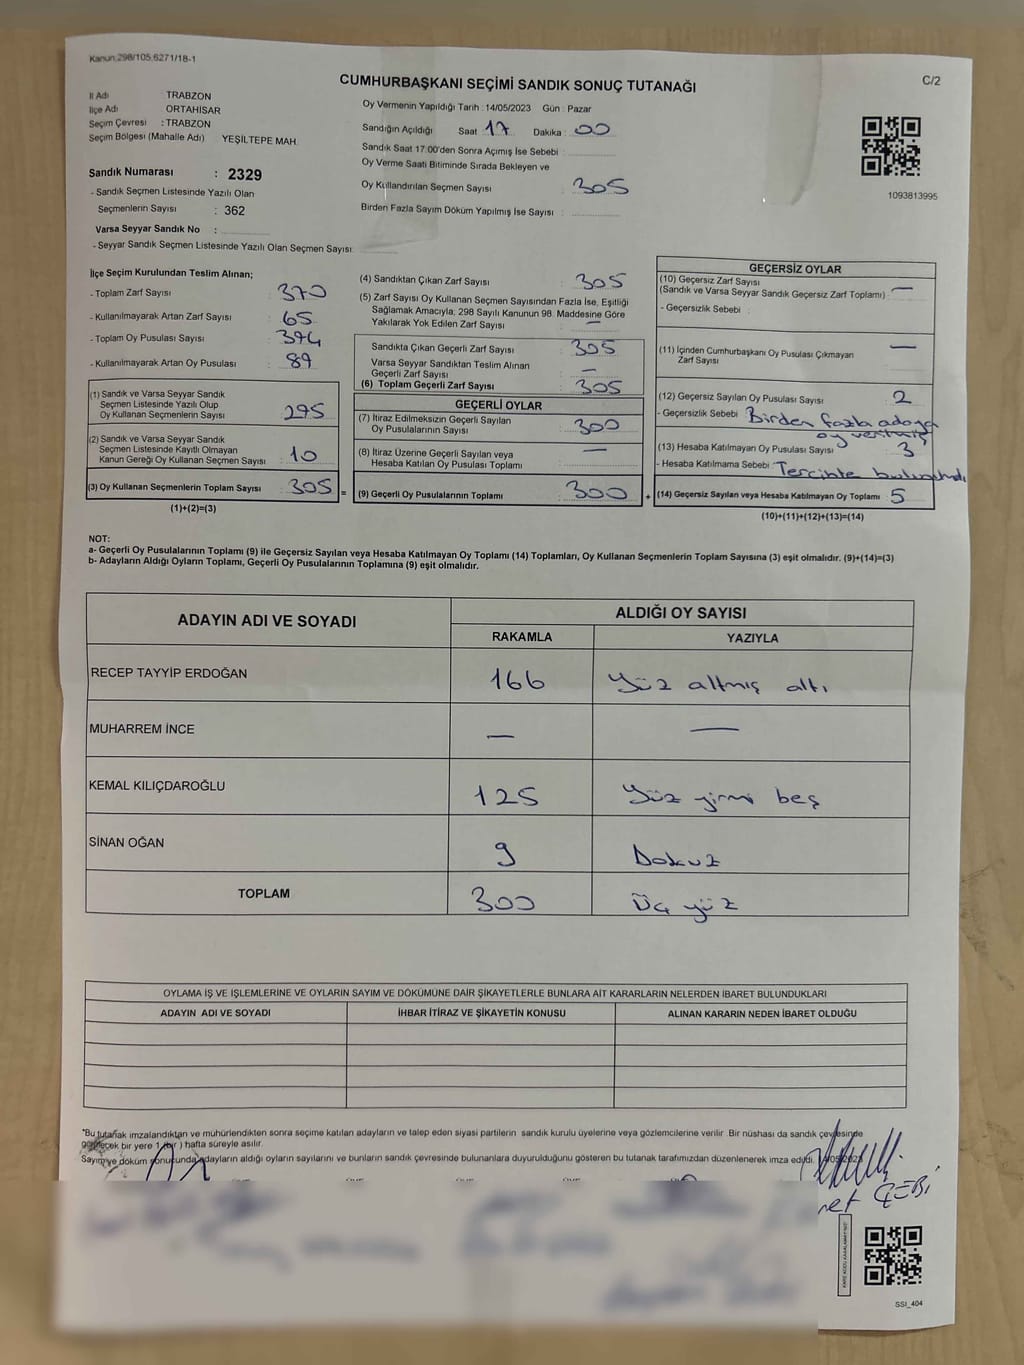 Kanun:298/105;6271/18-1
C/2
CUMHURBAŞKANI SEÇİMİ SANDIK SONUÇ TUTANAĞI
İl Adı : TRABZON
İlçe Adı : ORTAHİSAR
Seçim Çevresi : TRABZON
Seçim Bölgesi (Mahalle Adı) YEŞİLTEPE MAH.
Sandık Numarası : 2329
- Sandık Seçmen Listesinde Yazılı Olan
Seçmenlerin Sayısı : 362
Varsa Seyyar Sandık No :
- Seyyar Sandık Seçmen Listesinde Yazılı Olan Seçmen Sayısı:
Oy Vermenin Yapıldığı Tarih : 14/05/2023 Gün : Pazar
Sandığın Açıldığı Saat 17 Dakika : 00
Sandık Saat 17:00'den Sonra Açımış İse Sebebi :
Oy Verme Saati Bitiminde Sırada Bekleyen ve
Oy Kullandırılan Seçmen Sayısı : 305
Birden Fazla Sayım Döküm Yapılmış İse Sayısı :
1093813995
İlçe Seçim Kurulundan Teslim Alınan;
- Toplam Zarf Sayısı : 370
- Kullanılmayarak Artan Zarf Sayısı : 65
- Toplam Oy Pusulası Sayısı : 394
- Kullanılmayarak Artan Oy Pusulası : 89
(1) Sandık ve Varsa Seyyar Sandık
Seçmen Listesinde Yazılı Olup
Oy Kullanan Seçmenlerin Sayısı : 295
(2) Sandık ve Varsa Seyyar Sandık
Seçmen Listesinde Kayıtlı Olmayan
Kanun Gereği Oy Kullanan Seçmen Sayısı : 10
(3) Oy Kullanan Seçmenlerin Toplam Sayısı : 305 =
(1)+(2)=(3)
(4) Sandıktan Çıkan Zarf Sayısı : 305
(5) Zarf Sayısı Oy Kullanan Seçmen Sayısından Fazla İse, Eşitliği
Sağlamak Amacıyla; 298 Sayılı Kanunun 98. Maddesine Göre
Yakılarak Yok Edilen Zarf Sayısı : —
Sandıkta Çıkan Geçerli Zarf Sayısı : 305
Varsa Seyyar Sandıktan Teslim Alınan
Geçerli Zarf Sayısı : —
(6) Toplam Geçerli Zarf Sayısı : 305
GEÇERLİ OYLAR
(7) İtiraz Edilmeksizin Geçerli Sayılan
Oy Pusulalarının Sayısı : 300
(8) İtiraz Üzerine Geçerli Sayılan veya
Hesaba Katılan Oy Pusulası Toplamı : —
(9) Geçerli Oy Pusulalarının Toplamı : 300 +
GEÇERSİZ OYLAR
(10) Geçersiz Zarf Sayısı
(Sandık ve Varsa Seyyar Sandık Geçersiz Zarf Toplamı) : —
- Geçersizlik Sebebi :
(11) İçinden Cumhurbaşkanı Oy Pusulası Çıkmayan : —
Zarf Sayısı
(12) Geçersiz Sayılan Oy Pusulası Sayısı : 2
- Geçersizlik Sebebi : Birden fazla adaya
oy verilmiş
(13) Hesaba Katılmayan Oy Pusulası Sayısı : 3
- Hesaba Katılmama Sebebi : Tercihte bulunulmadı
(14) Geçersiz Sayılan veya Hesaba Katılmayan Oy Toplamı : 5
(10)+(11)+(12)+(13)=(14)
NOT:
a- Geçerli Oy Pusulalarının Toplamı (9) ile Geçersiz Sayılan veya Hesaba Katılmayan Oy Toplamı (14) Toplamları, Oy Kullanan Seçmenlerin Toplam Sayısına (3) eşit olmalıdır. (9)+(14)=(3)
b- Adayların Aldığı Oyların Toplamı, Geçerli Oy Pusulalarının Toplamına (9) eşit olmalıdır.
ADAYIN ADI VE SOYADI
ALDIĞI OY SAYISI
RAKAMLA YAZIYLA
RECEP TAYYİP ERDOĞAN 166 Yüz altmış altı
MUHARREM İNCE — —
KEMAL KILIÇDAROĞLU 125 Yüz yirmi beş
SİNAN OĞAN 9 Dokuz
TOPLAM 300 Üç yüz
OYLAMA İŞ VE İŞLEMLERİNE VE OYLARIN SAYIM VE DÖKÜMÜNE DAİR ŞİKAYETLERLE BUNLARA AİT KARARLARIN NELERDEN İBARET BULUNDUKLARI
ADAYIN ADI VE SOYADI İHBAR İTİRAZ VE ŞİKAYETİN KONUSU ALINAN KARARIN NEDEN İBARET OLDUĞU
*Bu tutanak imzalandıktan ve mühürlendikten sonra seçime katılan adayların ve talep eden siyasi partilerin sandık kurulu üyelerine veya gözlemcilerine verilir .Bir nüshası da sandık çevresinde
görülecek bir yere 1 (bir ) hafta süreyle asılır.
Sayım ve döküm sonucunda adayların aldığı oyların sayılarını ve bunların sandık çevresinde bulunanlara duyurulduğunu gösteren bu tutanak tarafımızdan düzenlenerek imza edildi. 14/05/2023
ÇEBİ
SSI_404